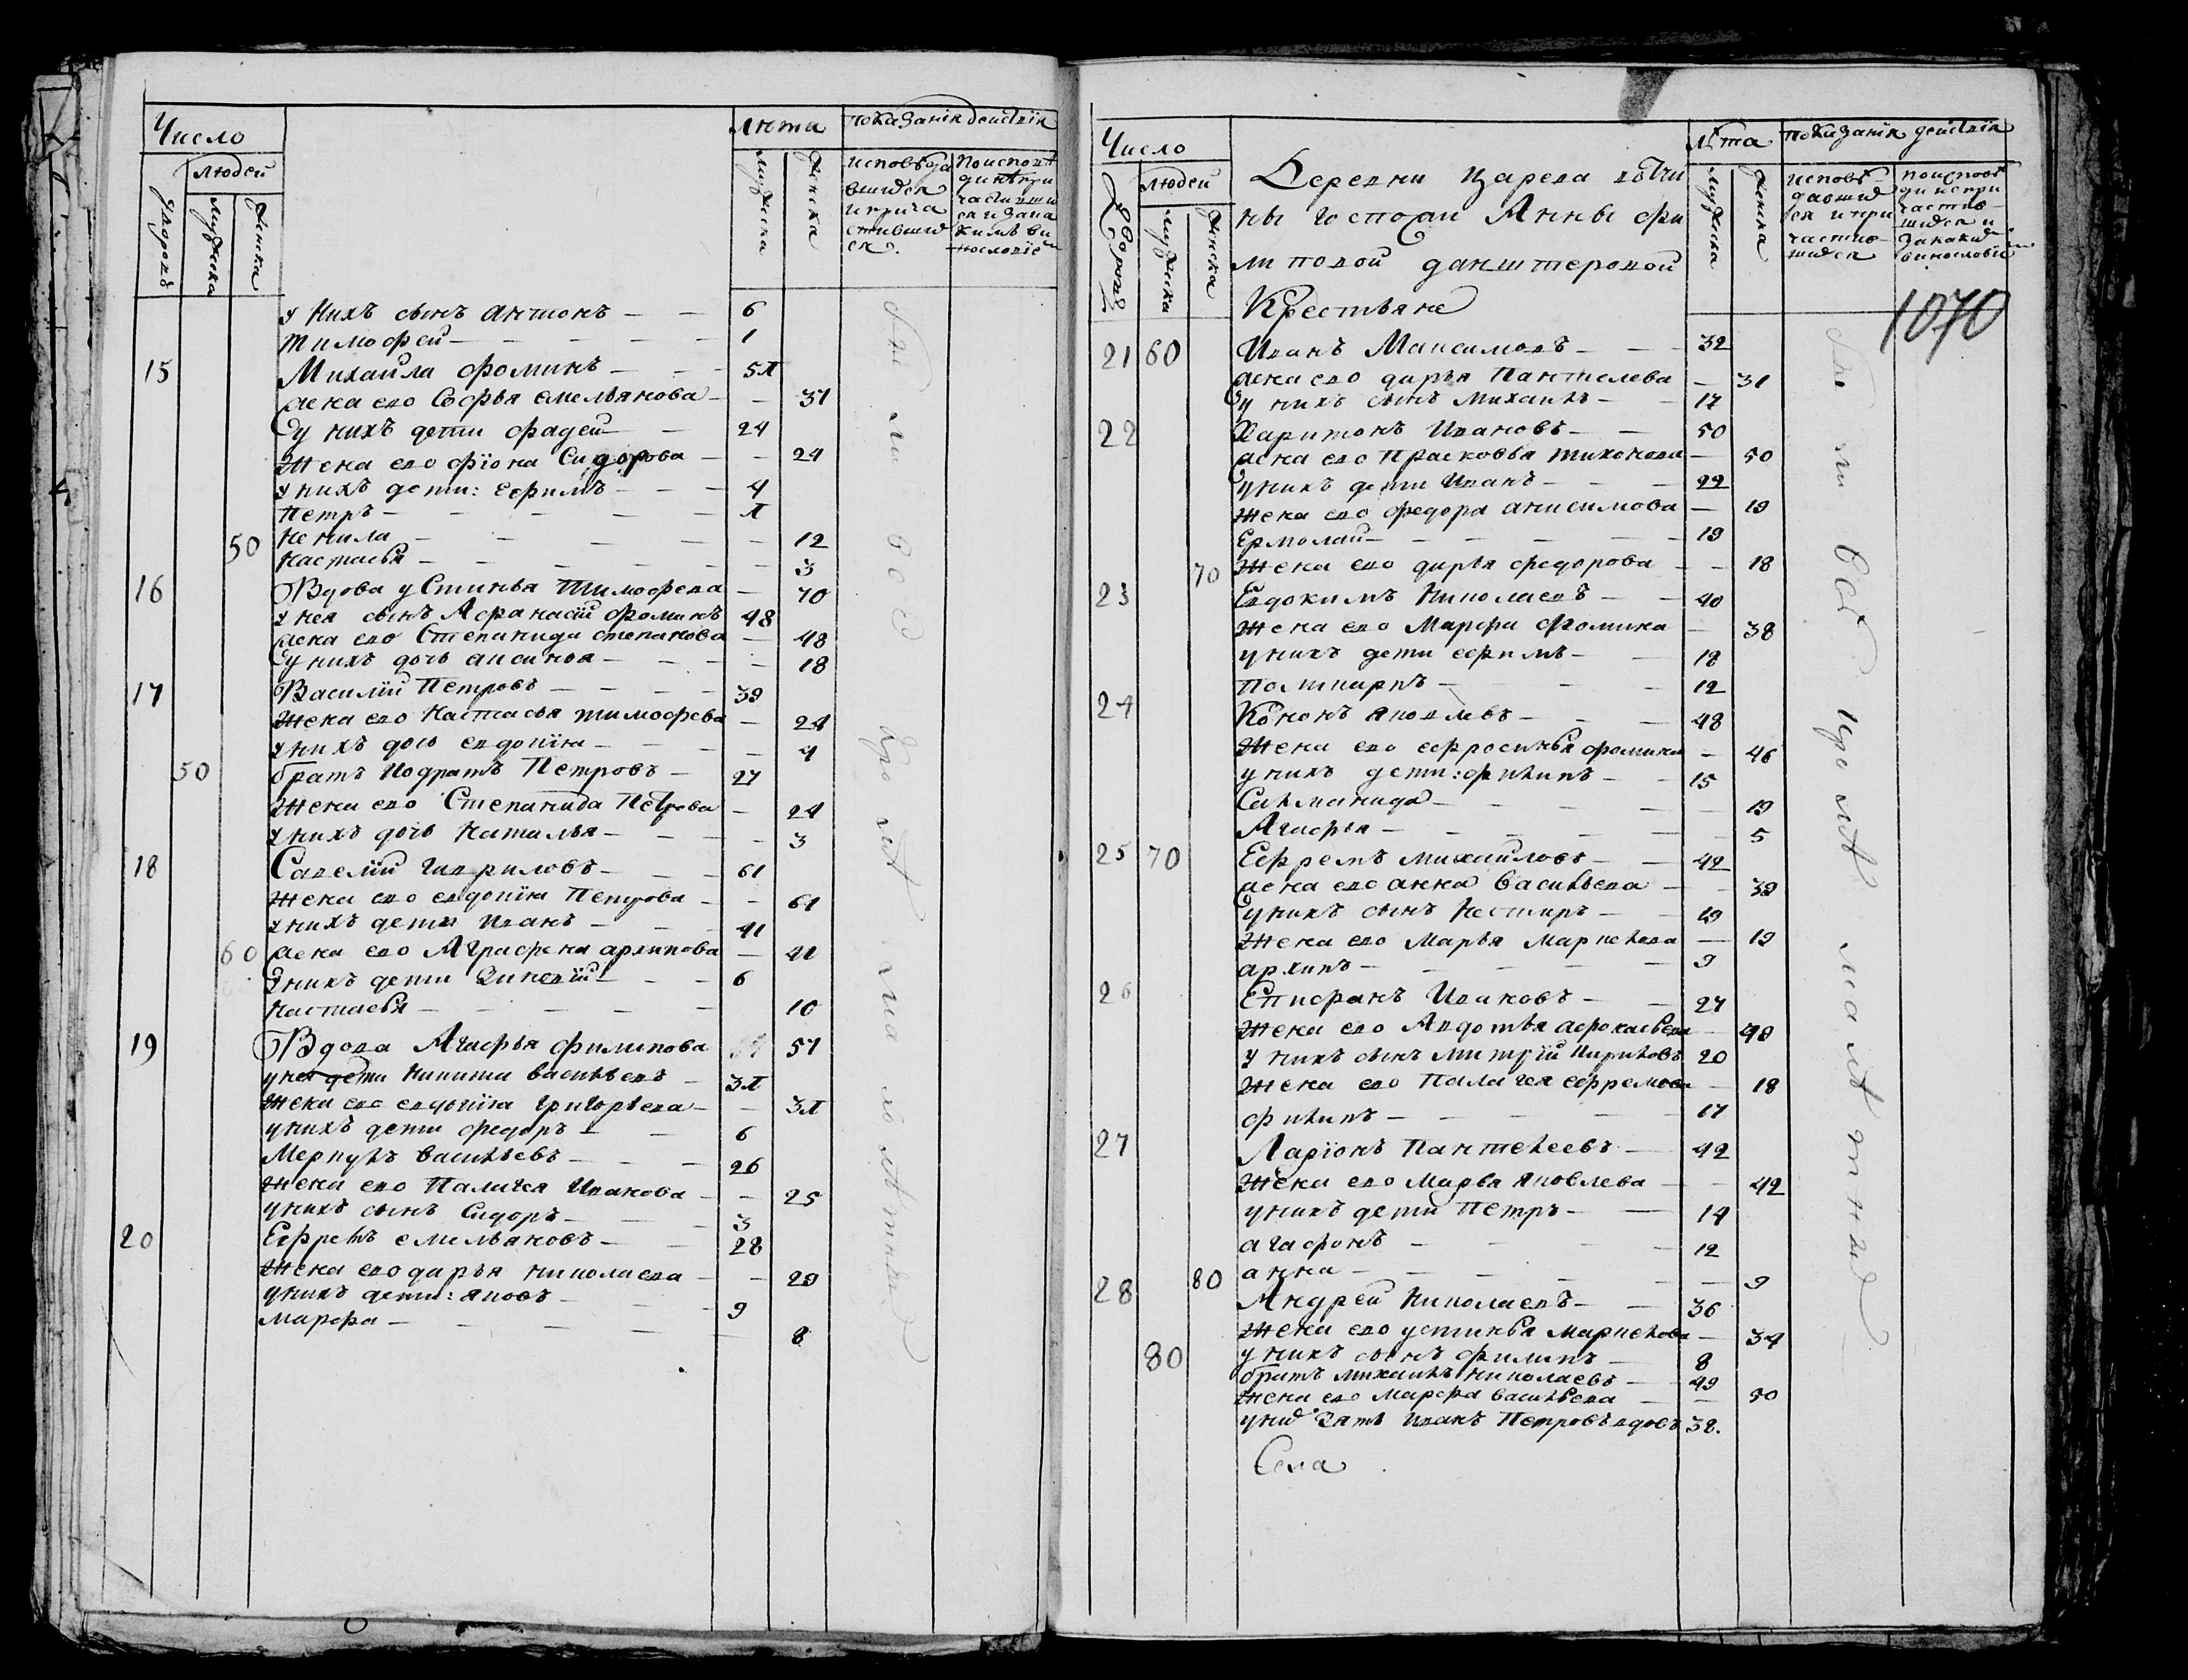 Число
Людей
дворовъ
мужеска
женска
лѣта
мужеска
женска
показанiя действiя
исповѣда
вшихся
и прича
стивших
ся.
по испов
ди не при
частивши
ся и за ка
кимъ ви
нословiе
у нихъ сынъ Антонъ — — 6
Тимофей — — — — — 1
15 Михайла Фоминъ — — —
жена ево Софья Емельянова — — 37
у нихъ дети Фадей — — 24
жена ево Фiона Сидорова — — 24
у нихъ дети: Ефимъ — — — 4
Петръ — — — — —
50 Ненила — — — — — 12
Настасья — — — — — 3
16 Вдова устинья Тимофева — 70
у нея сынъ Афанасiй Фоминъ 48
жена ево Степанида степанова — 48
у нихъ дочь аксинья — — — — 18
17 Василiй Петровъ — — — — 39
жена ево Настасья тимофева — 24
у нихъ дочь евдокiя — — — — 4
50 братъ Кодратъ Петровъ — 27
жена ево Степанида Петрова — 24
у нихъ дочь Наталья — — — — 3
18 Савелiй Гавриловъ — — — 61
жена ево евдокiя Петрова — — 61
у нихъ дети Иванъ — — — 41
60 жена ево Аграфена архипова — 41
у нихъ дети Зиновiй — — — 6
Настасья — — — — — 10
19 Вдова Агафья филипова 57
у нея дети Никита васильевъ —
жена ево евдокiя григорьева — —
у нихъ дети федоръ — — 6
Меркулъ васильевъ — — — 26
жена ево Палагея Иванова — — 25
у нихъ сынъ Сидоръ — — — 3
20 Ефремъ емельяновъ — — 28
жена ево дарья николаева — — 29
у нихъ дети: яковъ — — — 9
марфа — — — — — 8
Число
Людей
мужеска
женска
Деревни Царева вотчи
ны госпожи Анны фи
ли повой данштеровой
Крестьяне
лѣта
мужеска
женска
показанiя действiя
исповѣ
давших
ся и при
частив
шихся
по исповѣ
ди не при
частив
шихся и
за какимъ
винословiе
1070
21 60 Иванъ Максимовъ — — — 32
жена ево дарья Пантелева — 31
у нихъ сынъ Михаилъ — — 17
22 Харитонъ Ивановъ — — 50
жена ево Прасковья тихонова — 50
у нихъ дети Иванъ — — — 22
жена ево федора анисимова — 19
Ермолай — — — — — 19
70 жена ево дарья федорова — — 18
23 Евдокимъ Николаевъ — — 40
жена ево Марфа Фомина — 38
у нихъ дети ефимъ — — 18
Поликарпъ — — — — 12
24 Кононъ яковлевъ — — — 48
жена ево ефросинья фомина — 46
у нихъ дети: филипъ — — 15
— — — — 19
Агафья — — — — — 5
25 70 Ефремъ михайловъ — — 42
жена ево анна васильева — — 39
у нихъ сынъ нестиръ — — 19
жена ево марья Маркелова — 19
архипъ — — — — — 9
26 Епифанъ Ивановъ — — 27
жена ево Авдотья афонасьева — 48
у нихъ сынъ митрiй Кириловъ 20
жена ево Палагея ефремова — 18
филипъ — — — — — 17
27 Ларiонъ Пантелеевъ — — 42
жена ево марья яковлева — — 42
у нихъ дети Петръ — — 14
агафонъ — — — — 12
80 анна — — — — — 9
28 Андрей Николаевъ — — 36
жена ево устинья маркелова — 34
80 у нихъ сынъ филипъ — 8
братъ михаилъ николаевъ — 49
жена ево марфа васильева — — 50
у них зять иванъ Петровъ вдовъ 38.
Села